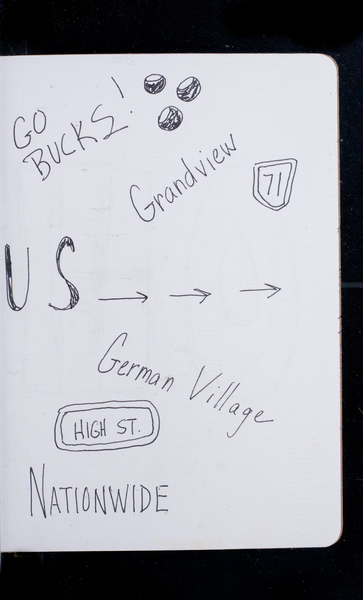 GO
BUCKS!
Grandview
71
US
German Village
HIGH ST.
NATIONWIDE